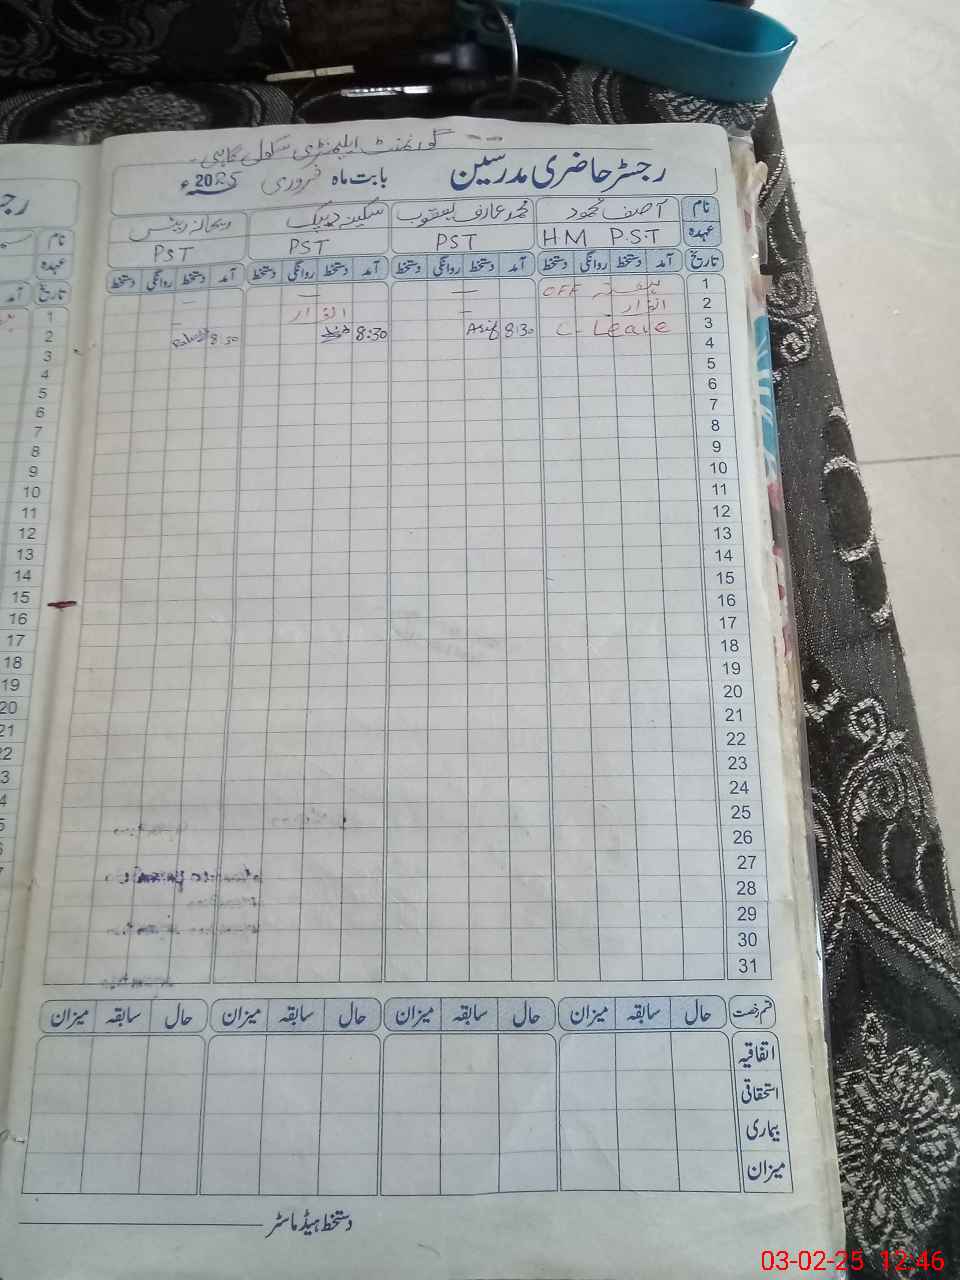 گورنمنٹ ایلیمنٹری سکول
رجسٹر حاضری مدرسین بابت ماہ فروری 2025ء
نام آصف محمود محمد عارف یعقوب سکینہ ریحانہ
عہدہ HM P.S.T PST PST PST
تاریخ آمد دستخط روانگی دستخط آمد دستخط روانگی دستخط آمد دستخط روانگی دستخط آمد دستخط روانگی دستخط
1 ہفتہ OFF — —
2 اتوار — اتوار —
3 C- Leave 8:30 Asif 8:30 8:30
4
5
6
7
8
9
10
11
12
13
14
15
16
17
18
19
20
21
22
23
24
25
26
27
28
29
30
31
قسم رخصت حال سابقہ میزان حال سابقہ میزان حال سابقہ میزان حال سابقہ میزان
اتفاقیہ
استحقاقی
بیماری
میزان
دستخط ہیڈ ماسٹر
نام
عہدہ
تاریخ آمد
1
2
3
4
5
6
7
8
9
10
11
12
13
14
15
16
17
18
19
20
21
03-02-25 12:46